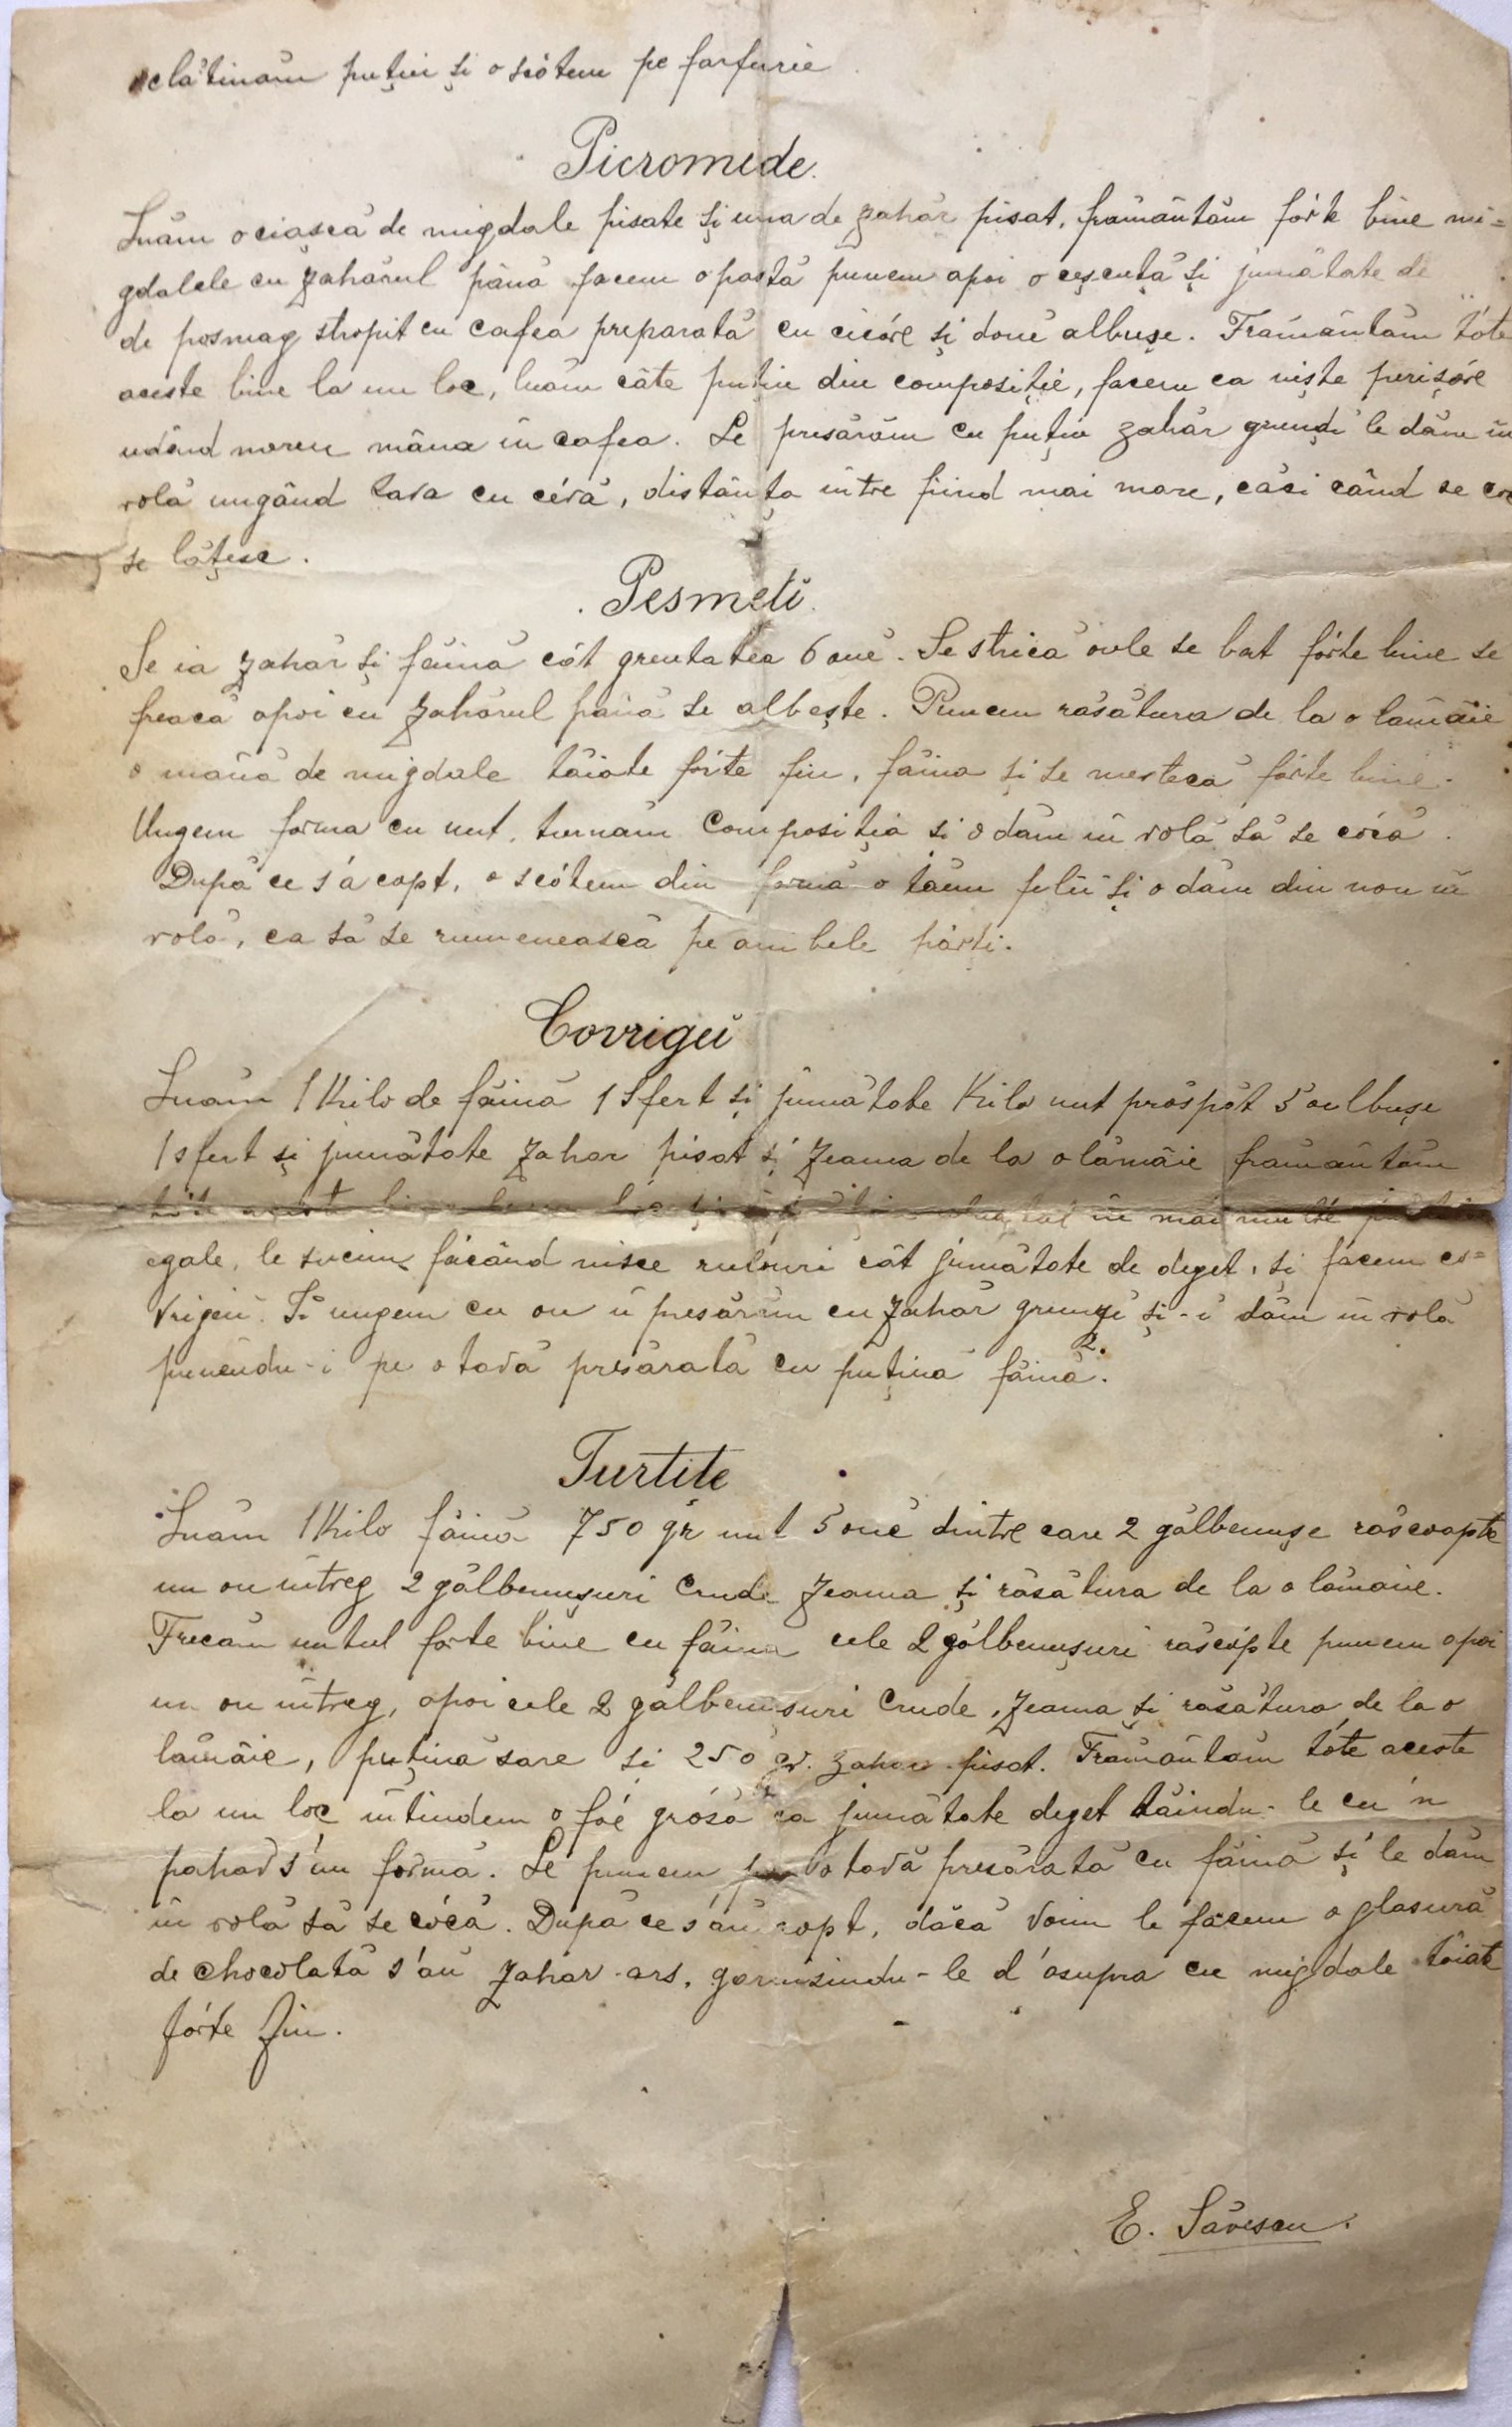 clătinăm puțin și o scótem pe farfurie
Picromide.
Luăm o ciașcă de migdale pisate și una de zahăr pisat, frămăntăm fórte bine mi=
gdalele cu zahărul până facem o pastă punem apoi o ceșcuță și jumătate de
de posmag stropit cu cafea preparată cu cicóre și doue albușe. Frământăm tóte
aceste bine la un loc, luăm câte puțin din composiție, facem ca niște perișóre
udând mereu mâna în cafea. Le presărăm cu puțin zahăr grunzi le dăm în
rolă ungând tava cu céră, distânța între fiind mai mare, căci când se coc
se lățesc.
Pesmeti.
Se ia zahăr și făină cât greutatea 6 oue. Se strică oule se bat fórte bine se
freacă apoi cu zahărul până se albește. Punem răsătura de la o lămâie
o mână de migdale tăiate fórte fin, făina și se mestecă fórte bine.
Ungem forma cu unt, turnăm composiția și o dăm în rolă să se cócă.
După ce s'a copt, o scótem din formă o tăem felii și o dăm din nou în
rolă, ca să se rumenească pe ambele părți.
Covrigii
Luăm 1 Kilo de făină 1 sfert și jumătate Kilo unt próspăt 5 oulbușe
1 sfert și jumătate zahar pisat și zeama de la o lămâie frământăm
în mai multe
egale, le sucim făcând nisce rulouri cât jumătate de deget, și facem co=
vrigii. Îi ungem cu ou îi presărăm cu zahăr grunzi și-i dăm în rolă
punendu-i pe o tavă presărată cu puțină făină. 2.
Turtite
Luăm 1 Kilo făină 750 gr unt 5 oue dintre care 2 gălbenușe răscoapte
un ou întreg 2 gălbenușuri crude zeama și răsătura de la o lămaie.
Frecăm untul forte bine cu făina cele 2 gălbenușuri răscópte punem apoi
un ou întreg, apoi cele 2 gălbenușuri crude, zeama și răsătura de la o
lămâie, puțină sare si 250 gr. zahar pisat. Frământăm tóte aceste
la un loc întindem o fóe grósă ca jumătate deget tăindu-le cu'n
pahar s'au formă. Le punem pe o tavă presărată cu făină și le dăm
în rolă să se cócă. După ce s'au copt, dăcă voim le facem o glasură
de chocolată s'au zahar ars, garnisindu-le d'asupra cu migdale tăiate
fórte fin.
E. Săvescu.